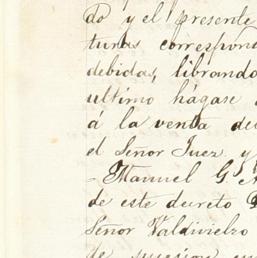 do y el presente
turas correspond
debidas, librando
ultimo hágase
á la venta de
el Señor Juez y
- Manuel G
de este decreto
Señor Valdivielzo
de sucesion en